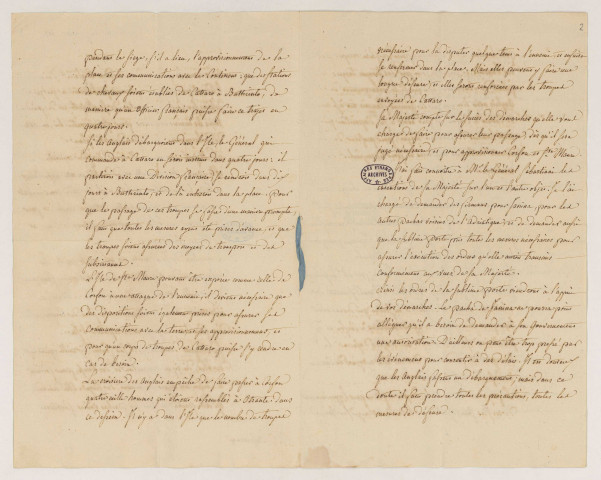 pendant le siege, s'il a lieu, l'approvisionnement de la
place et ses communications avec le Continent; que des stations
de chevaux soient établies de Cattaro à Buttrinto, de
maniere qu'un Officier français puisse faire ce trajet en
quatre jours.
Si les Anglais débarquaient dans l'Isle, le Général qui
commande à Cattaro en serait instruit dans quatre jours; il
partirait avec une Division, pourrait se rendre dans dix
jours à Buttrinto, et de là entrer dans la place. Pour
que le passage de ces troupes se fasse d'une maniere prompte,
il faut que toutes les mesures ayent été prises d'avance, et que
les troupes soient assurées des moyens de transport et de
subsistance.
L'Isle de Ste Maure pouvant être exposée comme celle de
Corfou à une attaque de l'ennemi, il devient nécessaire que
des dispositions soient également prises pour assurer ses
communications avec la terre et ses approvisionnemens, et
pour qu'un corps de troupes de Cattaro puisse s'y rendre en
cas de besoin.
La croisiere des Anglais empêche de faire passer à Corfou
quatre mille hommes qui étaient rassemblés à Otrante dans
ce dessein. Il n'y a dans l'Isle que le nombre de troupes
2
nécessaire pour la disputer quelque tems à l'ennemi, et ensuite
se renfermer dans la place. Mais elles peuvent y faire une
longue défense, si elles sont renforcées par les troupes
envoyées de Cattaro.
Sa Majesté compte sur le succès des démarches qu'elle vous
charge de faire pour assurer leur passage, dès qu'il sera
jugé nécessaire, et pour approvisionner Corfou et Ste Maure.
J'ai fait connaitre à Mr le Général Sébastiani les
intentions de Sa Majesté sur l'un et l'autre objet. Je l'ai
chargé de demander des firmans pour Janina, pour les
autres Pachas voisins de l'Adriatique, et de demander aussi
que la Sublime Porte prît toutes les mesures nécessaires pour
assurer l'exécution des ordres qu'elle aurait transmis
conformément aux vues de Sa Majesté.
Ainsi les ordres de la Sublime Porte viendront à l'appui
de vos démarches. Le Pacha de Janina ne pourra point
alléguer qu'il a besoin de demander à son Gouvernement
une autorisation. D'ailleurs on peut être trop pressé par
les événemens pour consentir à des délais. Il est douteux
que les Anglais fassent un débarquement; mais dans ce
doute il faut prendre toutes les précautions, toutes les
mesures de défense.
AFFAIRES ETRANGERES
ARCHIVES